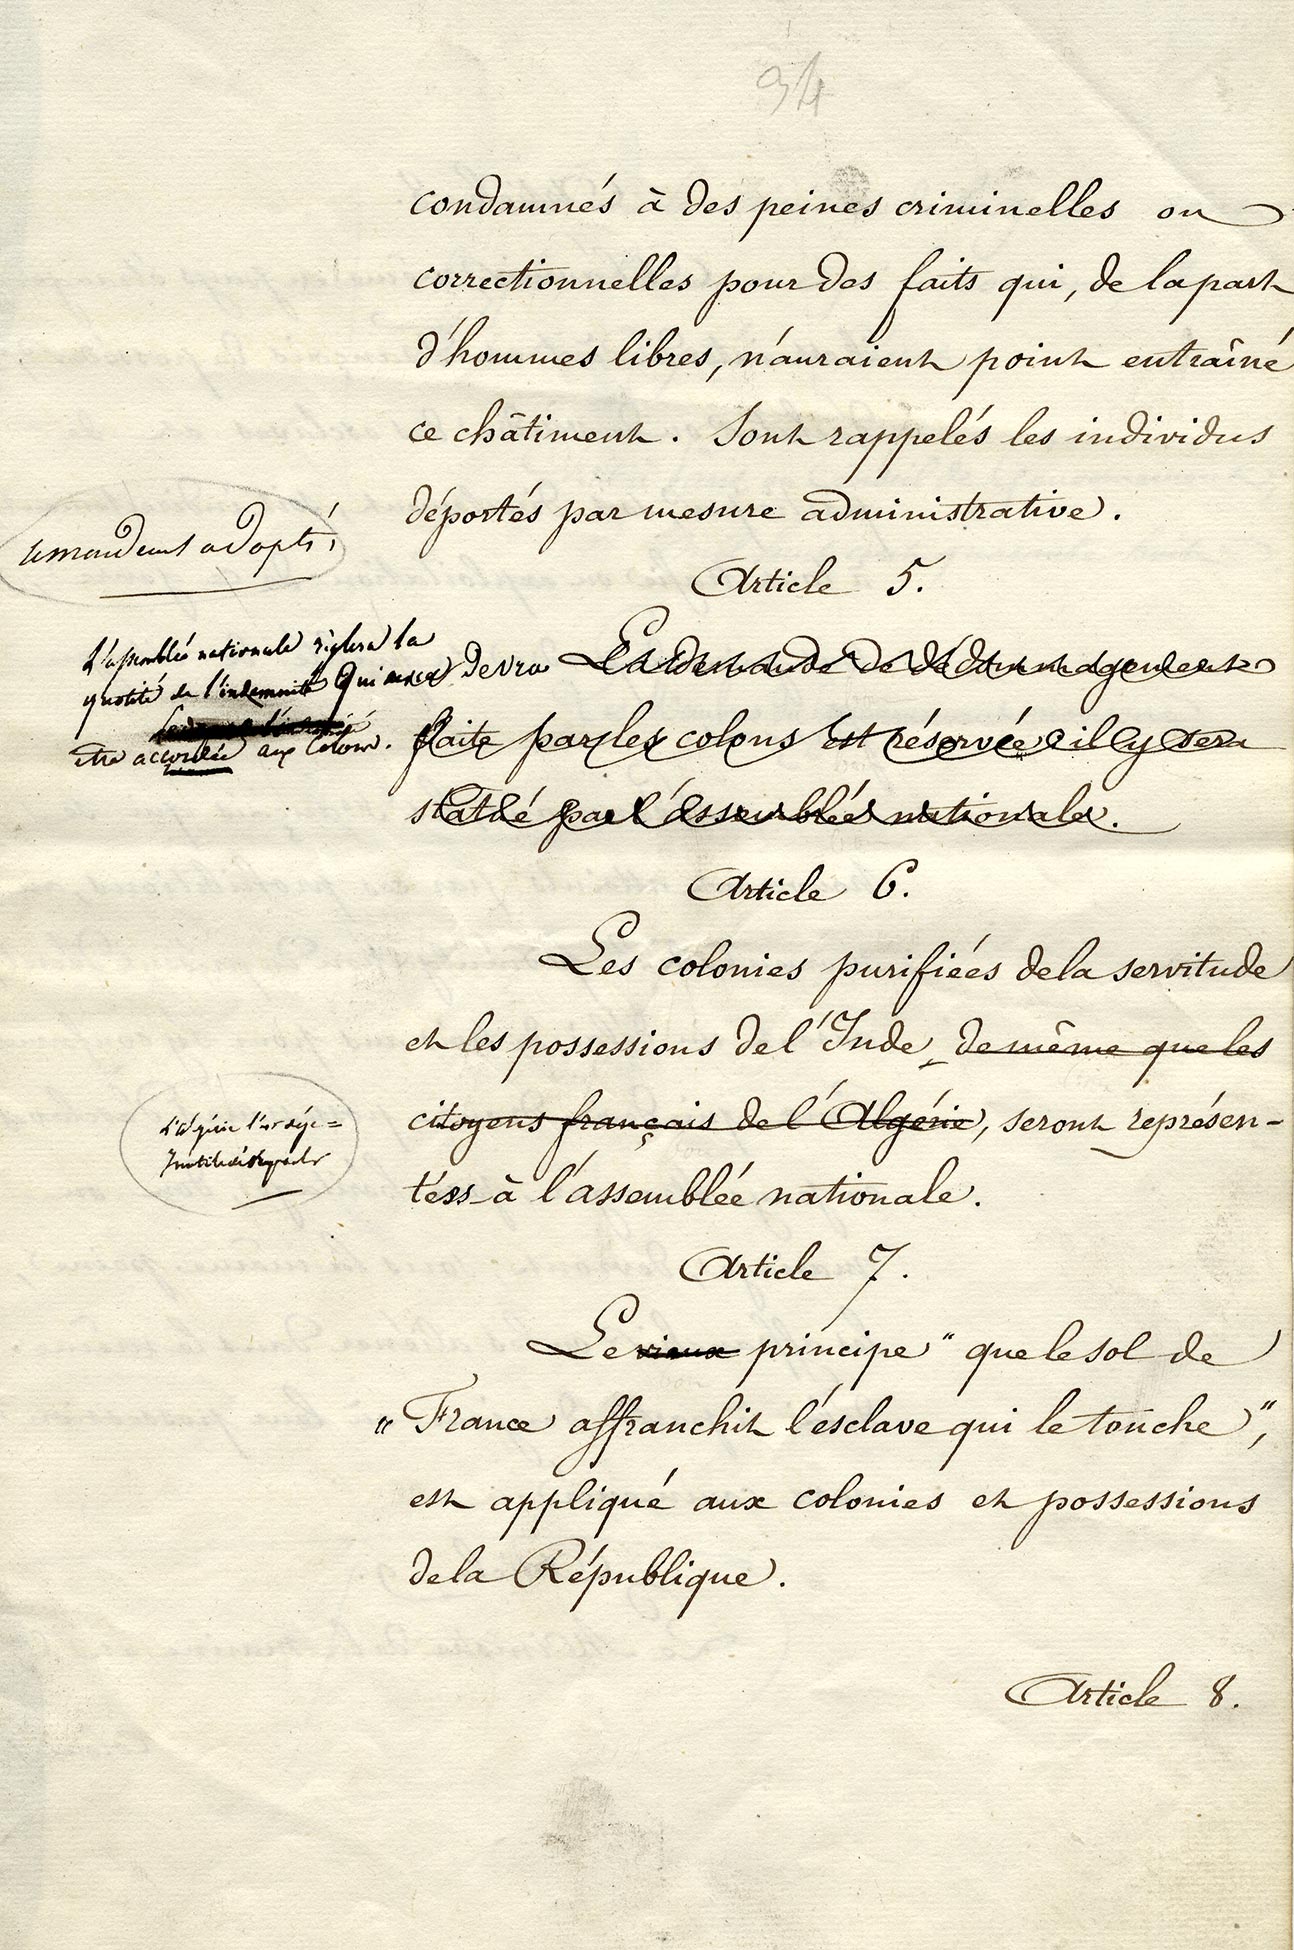 94
condamnés à des peines criminelles ou
correctionnelles pour des faits qui, de la part
d'hommes libres, n'auraient point entraîné
ce châtiment. Sont rappelés les individus
déportés par mesure administrative.
amendement adopté
Article 5.
L'assemblée nationale règlera la
quotité de l'indemnité qui devra
être accordée aux Colons.
La demande de dédommagement
faite par les colons est réservée il y sera
statué par l'assemblée nationale.
Article 6.
Les colonies purifiées de la servitude
et les possessions de l'Inde, de même que les
citoyens français de l'Algérie, seront représen-
L'algérie l'est déjà
Inutile d'en parler
tées à l'assemblée nationale.
Article 7.
Le vieux principe "que le sol de
"France affranchit l'esclave qui le touche",
est appliqué aux colonies et possessions
de la République.
Article 8.